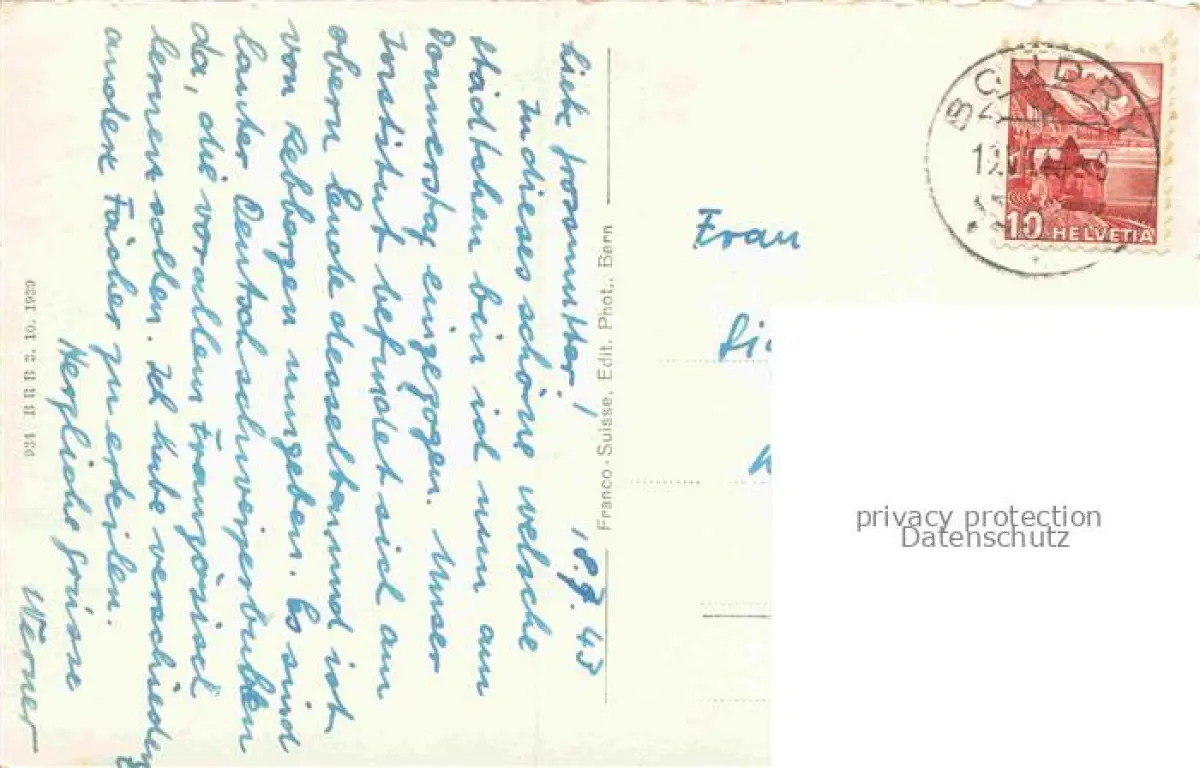 18.7.43
Liebe Grossmutter!
In dieses schöne welsche
Städtchen bin ich nun am
Donnerstag eingezogen. Unser
Institut befindet sich am
obern Ende desselben und ist
von Rebbergen umgeben. Es sind
lauter Deutschschweizerbuben
da, die vor allem Französisch
lernen sollen. Ich habe verschiedene
andere Fächer zu erteilen.
Herzliche Grüsse
Werner
Franco-Suisse, Edit. Phot., Bern
BRB 3. 10. 1939
BOUDRY
10 HELVETIA
Frau
privacy protection
Datenschutz